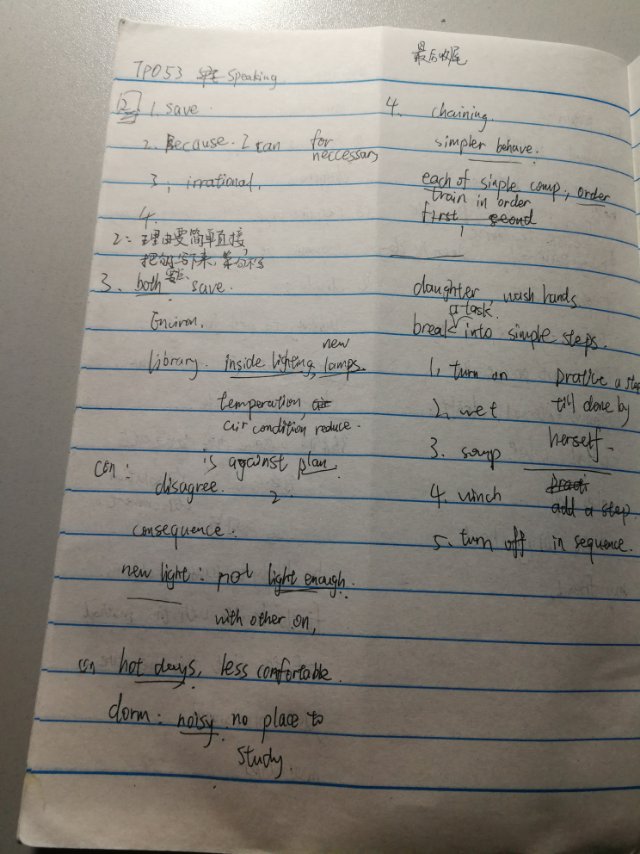 TPO53 Speaking
2 1. save.
2. Because. I can for
neccessary
3, irrational,
4.
2: 理由要简单直接,
把句写下来,
3. both save.
Environ.
library. inside lighting, new lamps.
temperation,
air condition reduce.
con: is against plan
disagree. 2.
consequence.
new light: not light enough.
with other on,
con hot days, less comfortable.
dorm: noisy. no place to
study.
最后收尾
4. chaining.
simpler behave.
each of simple comp, order
train in order
first second
daughter, wash hands.
a task.
break into simple steps.
1, turn on pratice a step
2, wet till done by
3. soap herself.
4. winch practi
add a step
5. turn off in sequence.